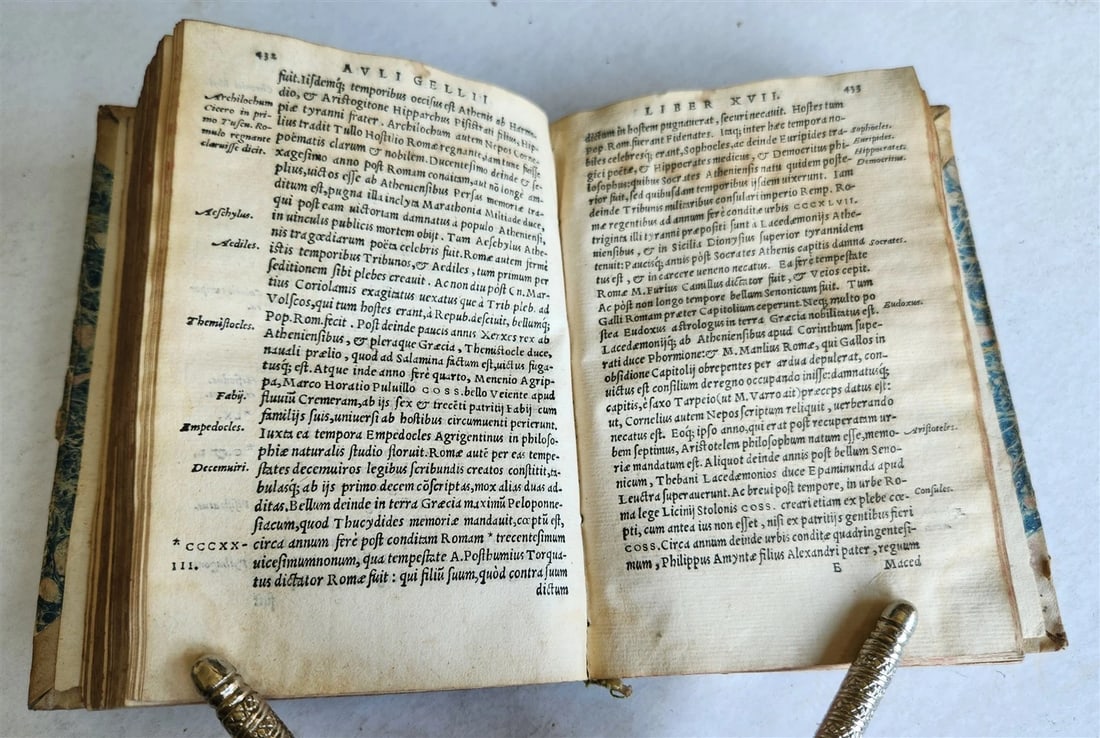 432
AVLI GELLII
fuit. Iisdemq; temporibus occisus est Athenis ab Harmo-
dio, & Aristogitone Hipparchus Pisistrati filius, Hip-
piæ tyranni frater. Archilochum autem Nepos Corne-
lius tradit Tullo Hostilio Romæ regnante, iam tunc fuisse
poëmatis clarum & nobilem. Ducentesimo deinde & se-
xagesimo anno post Romam conditam, aut nõ longè am-
plius, uictos esse ab Atheniensibus Persas memoriæ tra-
ditum est, pugna illa inclyta Marathonia Miltiade duce,
qui post eam uictoriam damnatus à populo Atheniensi,
in uinculis publicis mortem obijt. Tam Aeschylus Athe-
nis tragœdiarum poëta celebris fuit. Romæ autem fermè
istis temporibus Tribunos, & Aediles, tum primum per
seditionem sibi plebes creauit. Ac non diu pòst Cn. Mar-
tius Coriolanus exagitatus uexatus que à Trib. pleb. ad
Volscos, qui tum hostes erant, à Repub. desciuit, bellumq;
Pop. Rom. fecit. Post deinde paucis annis Xerxes rex ab
Atheniensibus, & pleraque Græcia, Themistocle duce,
nauali prælio, quod ad Salamina factum est, uictus fuga-
tusq; est. Atque inde anno ferè quarto, Menenio Agrip-
pa, Marco Horatio Puluillo COSS. bello Veiente apud
fluuiũ Cremeram, ab ijs sex & trecẽti patritij Fabij cum
familijs suis, uniuersi ab hostibus circumuenti perierunt.
Iuxta ea tempora Empedocles Agrigentinus in philoso-
phiæ naturalis studio floruit. Romæ autẽ per eas tempe-
states decemuiros legibus scribundis creatos constitit, ta-
bulasq; ab ijs primo decem cõscriptas, mox alias duas ad-
ditas. Bellum deinde in terra Græcia maximũ Peloponne-
siacum, quod Thucydides memoriæ mandauit, cœptũ est,
circa annum ferè post conditam Romam * trecentesimum
uicesimumnonum, qua tempestate A. Posthumius Torqua-
tus dictator Romæ fuit: qui filiũ suum, quòd contra suum
dictum
Archilochum
Cicero in pri-
mo Tuscu. Ro-
mulo regnante
claruisse dicit.
Aeschylus.
Aediles.
Themistocles.
Fabij.
Empedocles.
Decemuiri.
* CCCXX-
III.
LIBER XVII.
433
dictum in hostem pugnauerat, securi necauit. Hostes tum
pop. Rom. fuerant Fidenates. Itaq; inter hæc tempora no-
biles celebresq; erant, Sophocles, ac deinde Euripides tra-
gici poëtæ, & Hippocrates medicus, & Democritus phi-
losophus: quibus Socrates Atheniensis natu quidem poste-
rior fuit, sed quibusdam temporibus ijsdem uixerunt. Iam
deinde Tribunis militaribus consulari imperio Remp. Ro-
mæ regentibus ad annum ferè conditæ urbis CCCXLVII.
triginta illi tyranni præpositi sunt à Lacedæmonijs Athe-
niensibus, & in Sicilia Dionysius superior tyrannidem
tenuit: Paucisq; annis pòst Socrates Athenis capitis damna
tus est, & in carcere ueneno necatus. Ea ferè tempestate
Romæ M. Furius Camillus dictator fuit, & Veios cepit.
Ac pòst non longo tempore bellum Senonicum fuit. Tum
Galli Romam præter Capitolium ceperunt. Neq; multo pò
stea Eudoxus astrologus in terra Græcia nobilitatus est.
Lacedæmonijq; ab Atheniensibus apud Corinthum supe-
rati duce Phormione: & M. Manlius Romæ, qui Gallos in
obsidione Capitolij obrepentes per ardua depulerat, con-
uictus est consilium de regno occupando inisse: damnatusq;
capitis, è saxo Tarpeio (ut M. Varro ait) præceps datus est:
ut, Cornelius autem Nepos scriptum reliquit, uerberando
necatus est. Eoq; ipso anno, qui erat post recuperatam ur-
bem septimus, Aristotelem philosophum natum esse, memo-
riæ mandatum est. Aliquot deinde annis post bellum Seno-
nicum, Thebani Lacedæmonios duce Epaminunda apud
Leuctra superauerunt. Ac breui post tempore, in urbe Ro-
ma lege Licinij Stolonis COSS. creari etiam ex plebe cœ-
pti, cum antea ius non esset, nisi ex patritijs gentibus fieri
COSS. Circa annum deinde urbis conditæ quadringentesi-
mum, Philippus Amyntæ filius Alexandri pater, regnum
E Maced
Sophocles.
Euripides.
Hippocrates.
Democritus.
Socrates.
Eudoxus.
Aristoteles.
Consules.